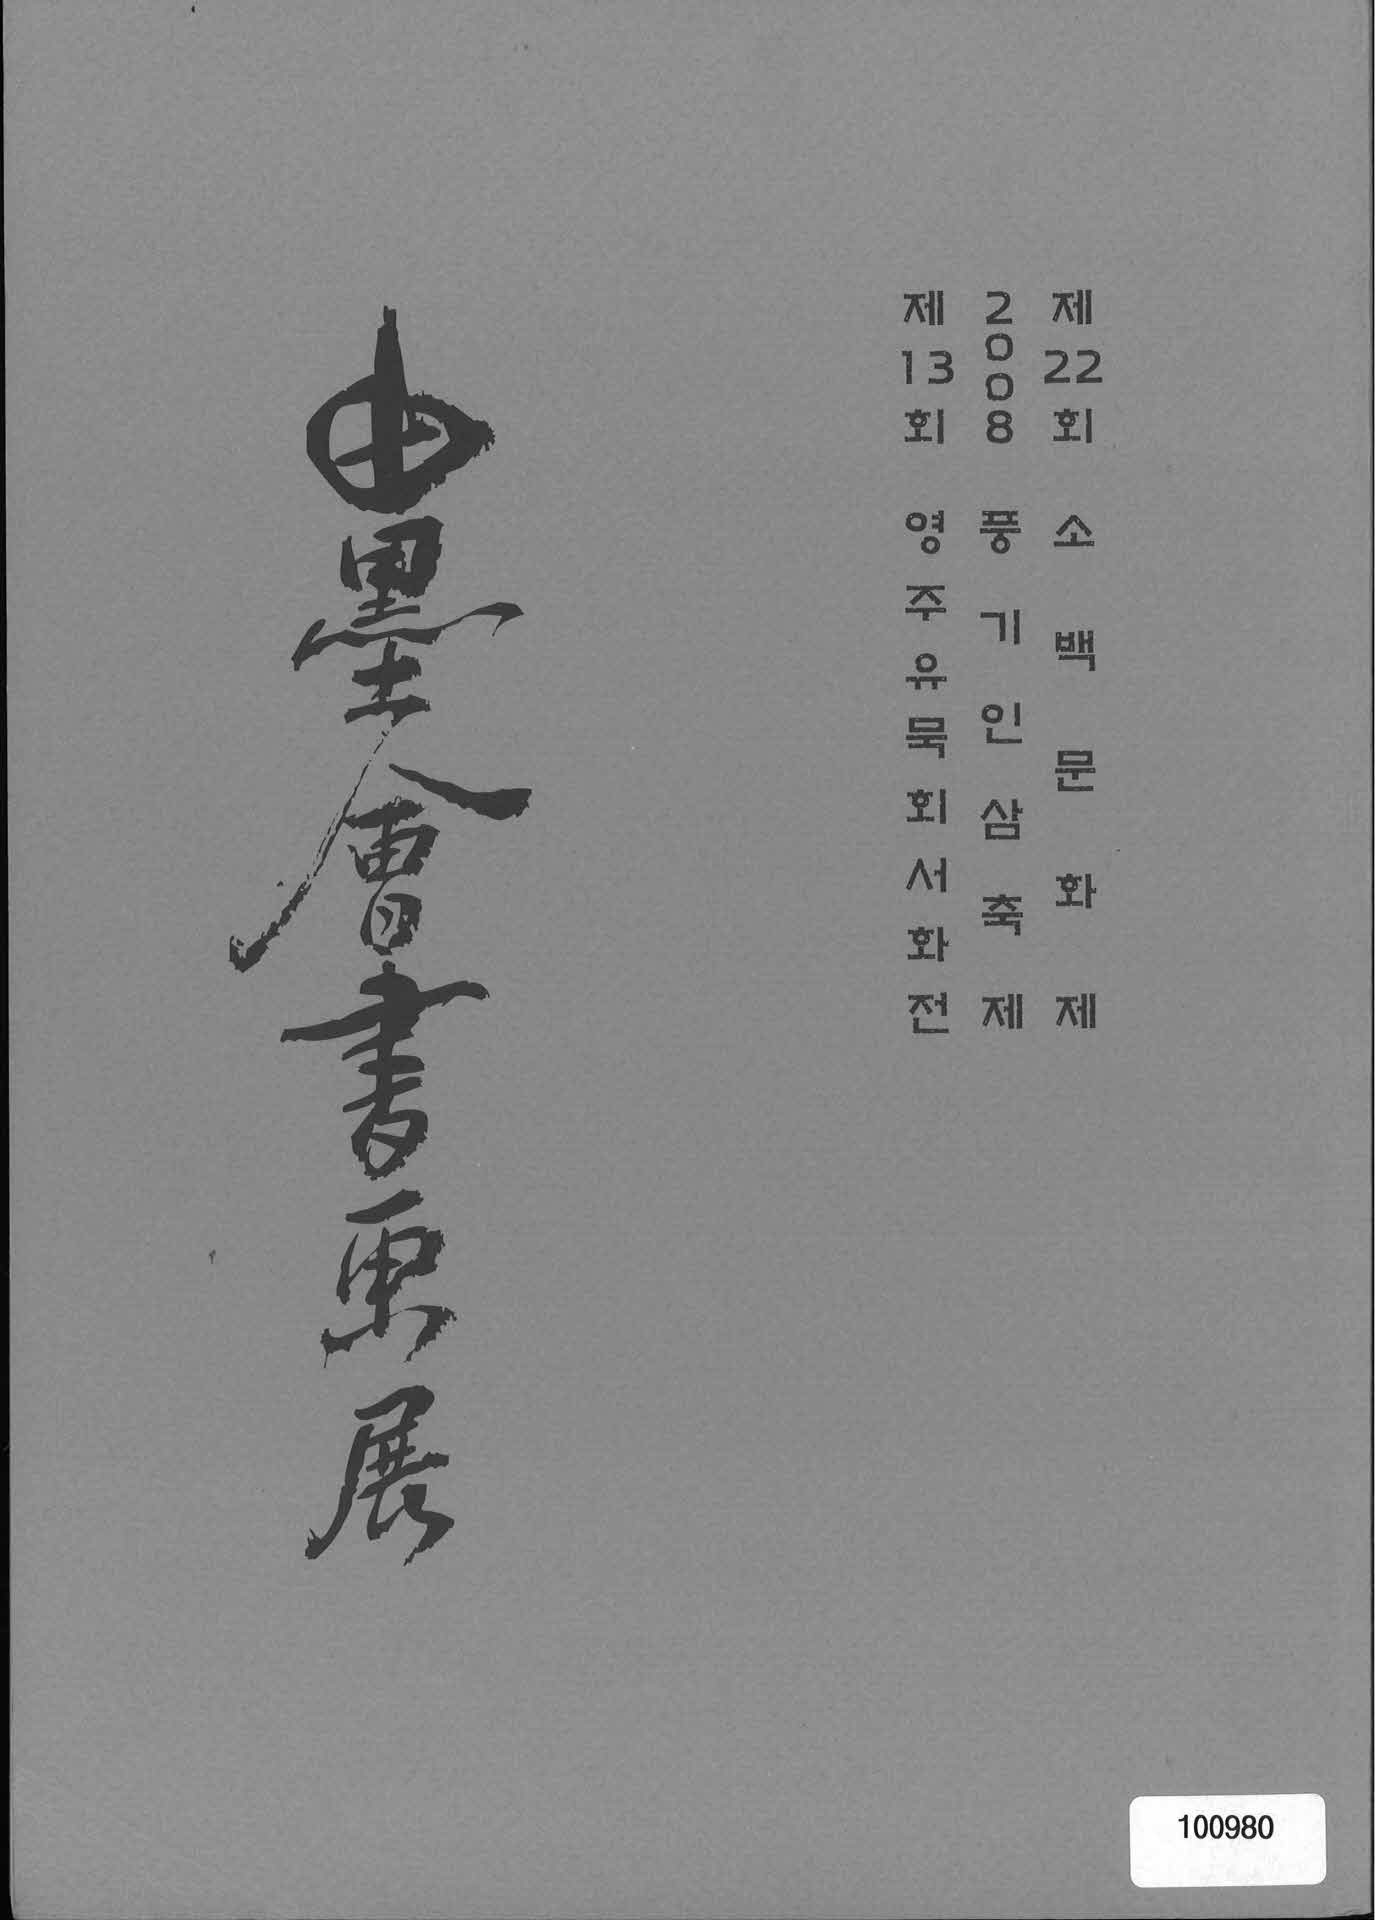 제22회 소백문화제
2008 풍기인삼축제
제13회 영주유묵회서화전
由墨會書畫展
100980